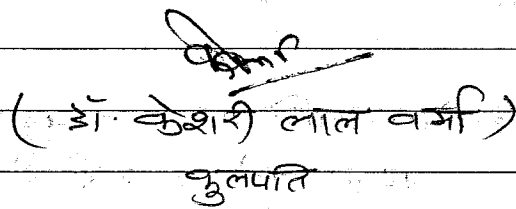 ( डॉ. केशरी लाल वर्मा )
कुलपति